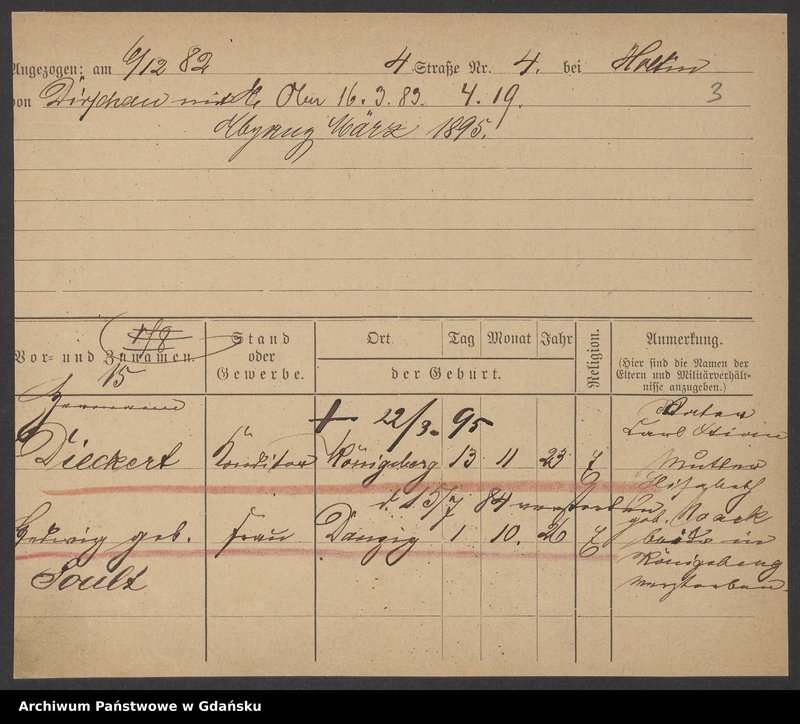 Angezogen: am 6/12 82 4 Straße Nr. 4. bei
von Dirschau 16.3.83. 4.19. 3
Abgang März 1895.
Vor- und Zunamen.
1/8
15
Stand
oder
Gewerbe.
Ort Tag Monat Jahr
der Geburt.
Religion.
Anmerkung.
(Hier sind die Namen der
Eltern und Militärverhält-
nisse anzugeben.)
Hermann
Dieckert Konditor Königsberg 13 11 23
† 22/3. 95
Vater
Carl
Mutter
Elisabeth
geb. Noack
beide in
Königsberg
verstorben
d. 15/7 84 verstorben
Hedwig geb. Frau Danzig 1 10. 26
Soult
Archiwum Państwowe w Gdańsku